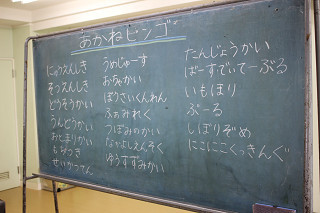 おかねビンゴ
にゅうえんしき
そつえんしき
どうそうかい
うんどうかい
おとまりかい
もちつき
せいかつてん
うめじゅーす
おちゃかい
ぼうさいくんれん
ふぁみれく
つぼみのかい
なかよしえんそく
ゆうすずみかい
たんじょうかい
ばーすでいてーぶる
いもほり
ぷーる
しぼりぞめ
にこにこくっきんぐ